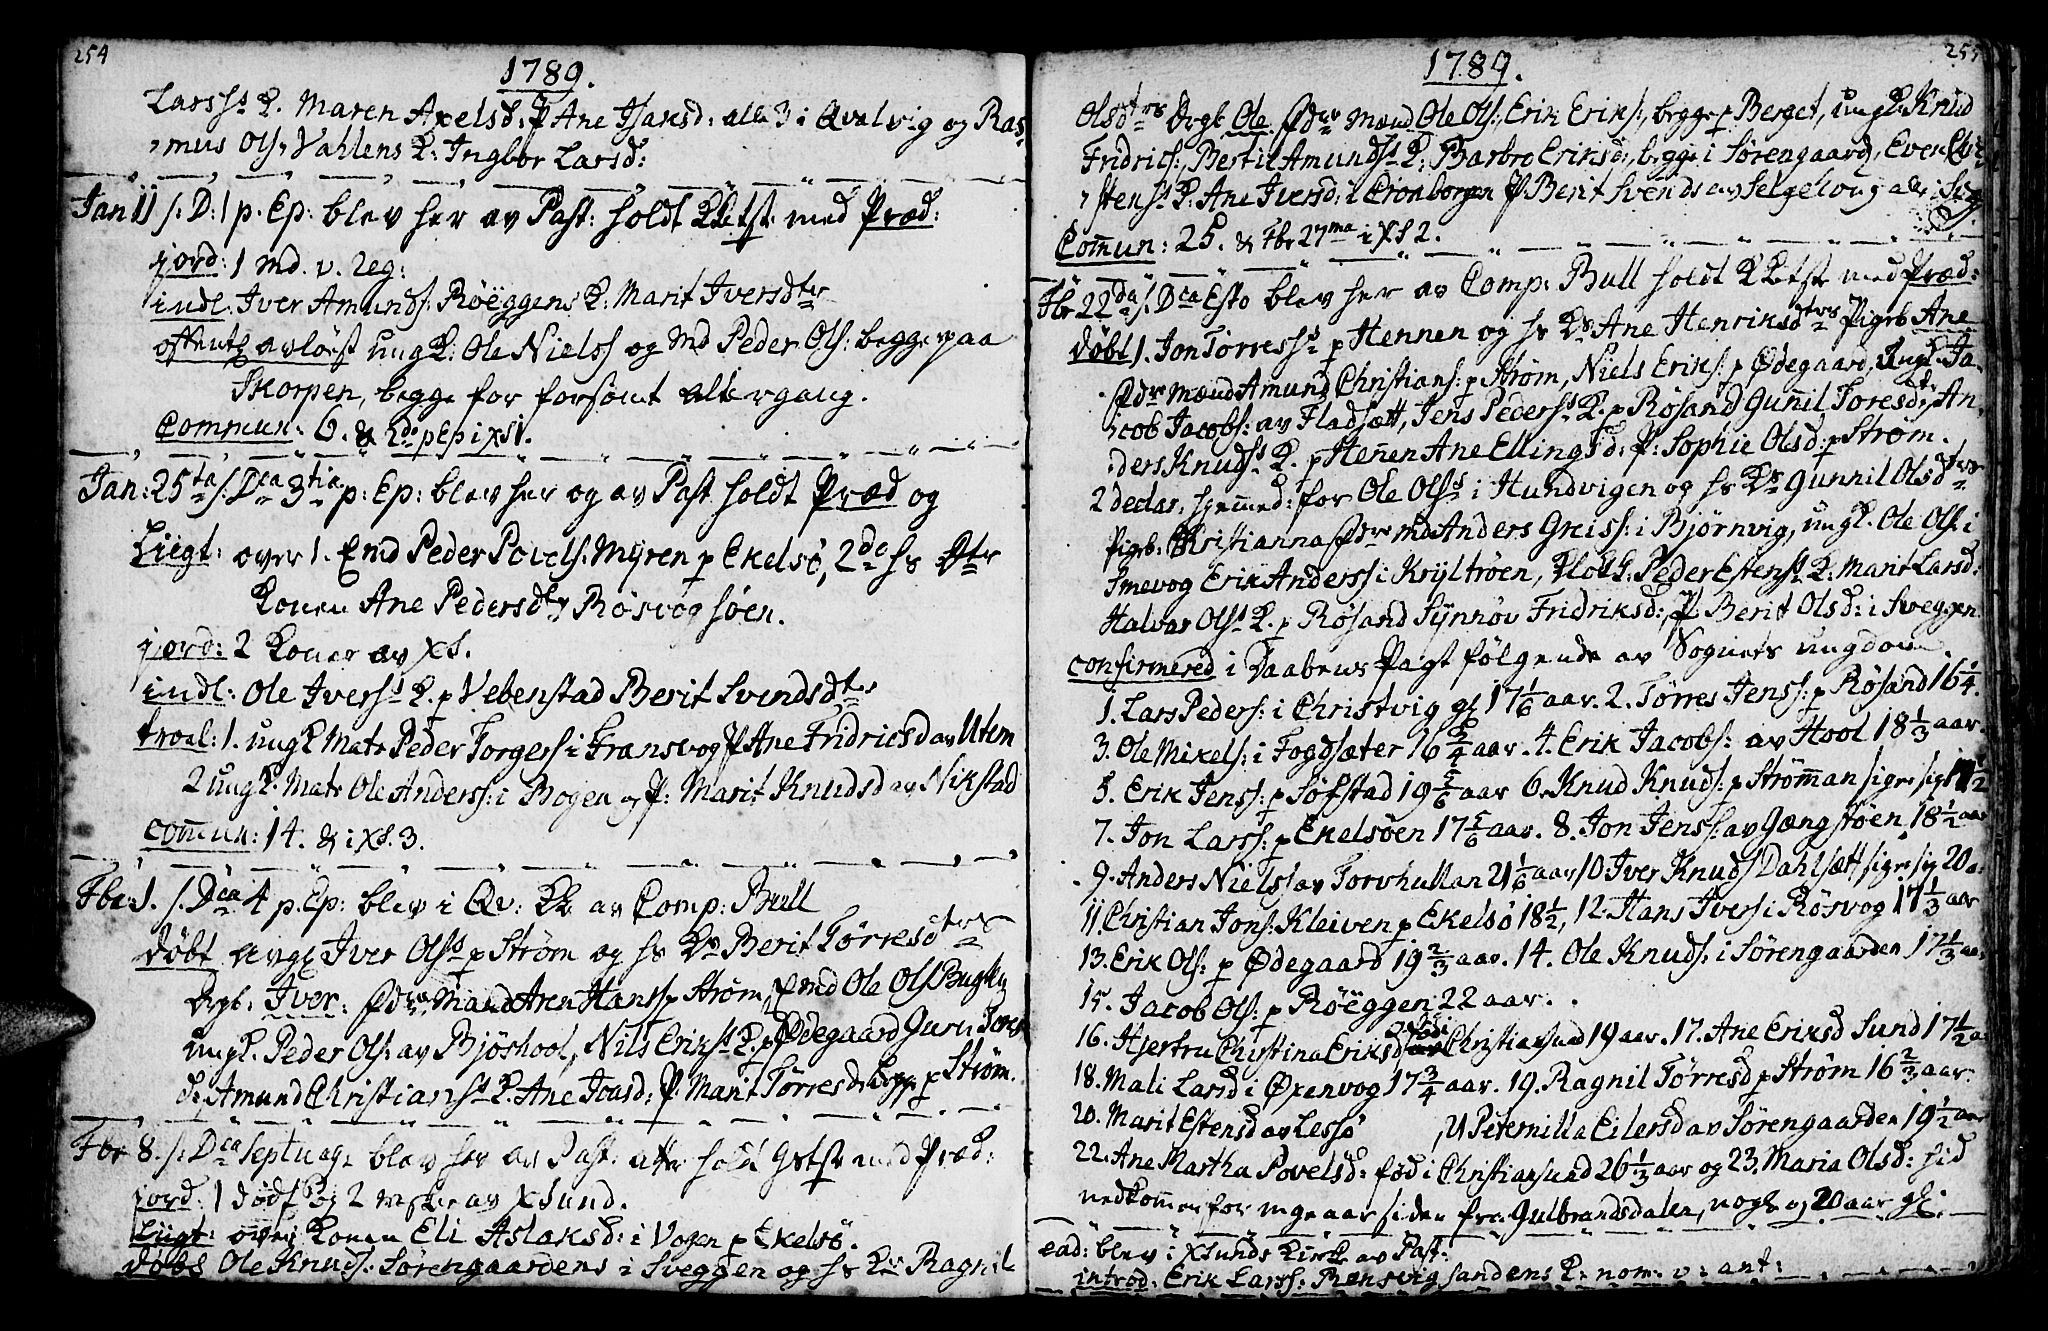 254
1789.
Larss: K. Maren Axelsd: P Ane Isaksd: alle 3 i Qvalvig og Ras-
mus Ols: Vahlens K: Ingbor Larsd:
Jan 11 /: D: 1 p. Ep: blev her av Past: holdt KKtst med Præd:
jord: 1 md. v. 2eg:
indl. Iver Amunds: Röeggens K: Marit Iversdtr
offentl avlöst ungK: Ole Niels og md Peder Ols: begge paa
Skorpen, begge for forsömt altergang.
Commun: 6. & 2do p Ep i XS 1.
Jan: 25ta /: Dca 3tia p: Ep: blev her og av Past holdt Præd og
Liigt: over 1. Emd Peder Povels: Myren p Ekelsö, 2do hs Dtr
Konen Ane Pedersdtr Rösvogsöen.
jord: 2 Koner av XS.
indl: Ole Iverss K. p Vebenstad Berit Svendsdtr
trol: 1. ungK Matr Peder Torgers i Fransvog P Ane Fridricsd av Utem
2 ungK. Matr Ole Anderss: i Bogen og P: Marit Knudsd av Nikstad
Commun: 14. & i XS. 3.
Fbr: 1. /: Dca 4 p. Ep: blev i Qv: KK av Comp: Bull
döbt Iver Olss p Ström og hs Ks Berit Törresdtrs
Drgb: Iver: Fdre Mænd Aren Hanss p Ström, Emd Ole Ols Bugten
ungK. Peder Ols: av Bjöshool, Nils Erikss K. p Ödegaard Guru Tores
d: Amund Christianss K. Ane Joasd: P: Marit Törresd begge p Ström.
Fbr 8. /: Dca Septuag: blev her av Past: atter holdt Gtst med Præd:
jord: 1 dödf B og 2 av XSund.
Liigt: over Konen Eli Aslaksd: i Vogen p Ekelsö.
döbt Ole Knuds: Sörengaardens i Sveggen og hs Ks Ragnil
255
1789.
Olsdtrs Drgb Ole Fdre Mænd Ole Ols:, Erik Eriks:, begge p Berget, ungK Knud
Fridrics:, Bertil Amundss K: Barbro Eriksd:, begge i Sörengaard, Even
stens: K: Ane Iversd: i Cronborgen P Berit Svends av Selgelong alle i
Commun: 25. & Fbr 27ma i XS 2.
Fbr 22da /: Dca Esto blev her av Comp: Bull holdt KKtst med Præd:
döbt 1. Jon Törress p Hennen og hs Ks Ane Henriksdtrs Pigeb Ane
Fdr Mænd Amund Christians: p Ström, Niels Eriks: p Ödegaard, ungK Ja-
cob Jacobs: av Fladsætt, Jens Pederss K. p Rösand Gunnil Toresd:, An-
ders Knudss K. p Hennen Ane Ellingsd: P: Sophie Olsd: p Ström.
2 declar, hjemed: for Ole Olss i Hundvigen og hs Ks Gunnil Olsdtrs
Pigeb: Christianna Fdre md Anders Greiss: i Bjørnvig, ungK. Ole Ols: i
Smevog Erik Anderss i Kryltröen, KlokK: Peder Estenss K: Marit Larsd:
Halvar Olss K. p Rösand Synnöv Fridriksd:, P: Berit Olsd: i Sveggen
confirmered i Daabens Pagt fölgende av Sognets ungdom
1. Lars Peders: i Christvig gl 17 1/6 aar. 2. Törres Jenss: p Rösand 16 1/4.
3. Ole Mikels: i Fogdsæter 16 3/4 aar. 4. Erik Jacobs: av Hool 18 1/3 aar.
5. Erik Jenss: p Söfstad 19 5/6 aar 6. Knud Knuds: p Strömman sigr sig 17 1/2
7. Jon Larss: p Ekelsöen 17 5/6 aar. 8. Jon Jenss: av Gængstöen 18 1/2 aar
9. Anders Niels: av Torvhullan 21 1/6 aar 10 Iver Knuds Dahlsætt sigr sig 20 a:
11. Christian Jons: Kleiven p Ekelsö 18 1/2, 12. Hans Ivers i Rösvog 17 1/3 aar
13. Erik Ols: p Ödegaard 19 2/3 aar. 14. Ole Knuds: i Sörengaarden 17 1/3 aa:
15. Jacob Ols: p Röeggen 22 aar.
16. Hjertru Christina Eriksd födt i Christiansund 19 aar. 17. Ane Eriksd Sund 17 1/2 a
18. Mali Larsd i Öxenvog 17 3/4 aar. 19. Ragnil Törresd p Ström 16 2/3 aar.
20. Marit Estensd av Lessö , 21 Peternilla Eilersd av Sörengaarden 19 1/2 aar
22. Ane Martha Povelsd: föd i Christiansund 26 1/3 aar og 23. Maria Olsd: hid
nedkommen for nogen aar siden fra Gulbrandsdalen, nogle og 20 aar gl:
ead: blev i XSunds Kirke av Past:
introd: Erik Larss: Rensvigsandens K: nom: v: ant: